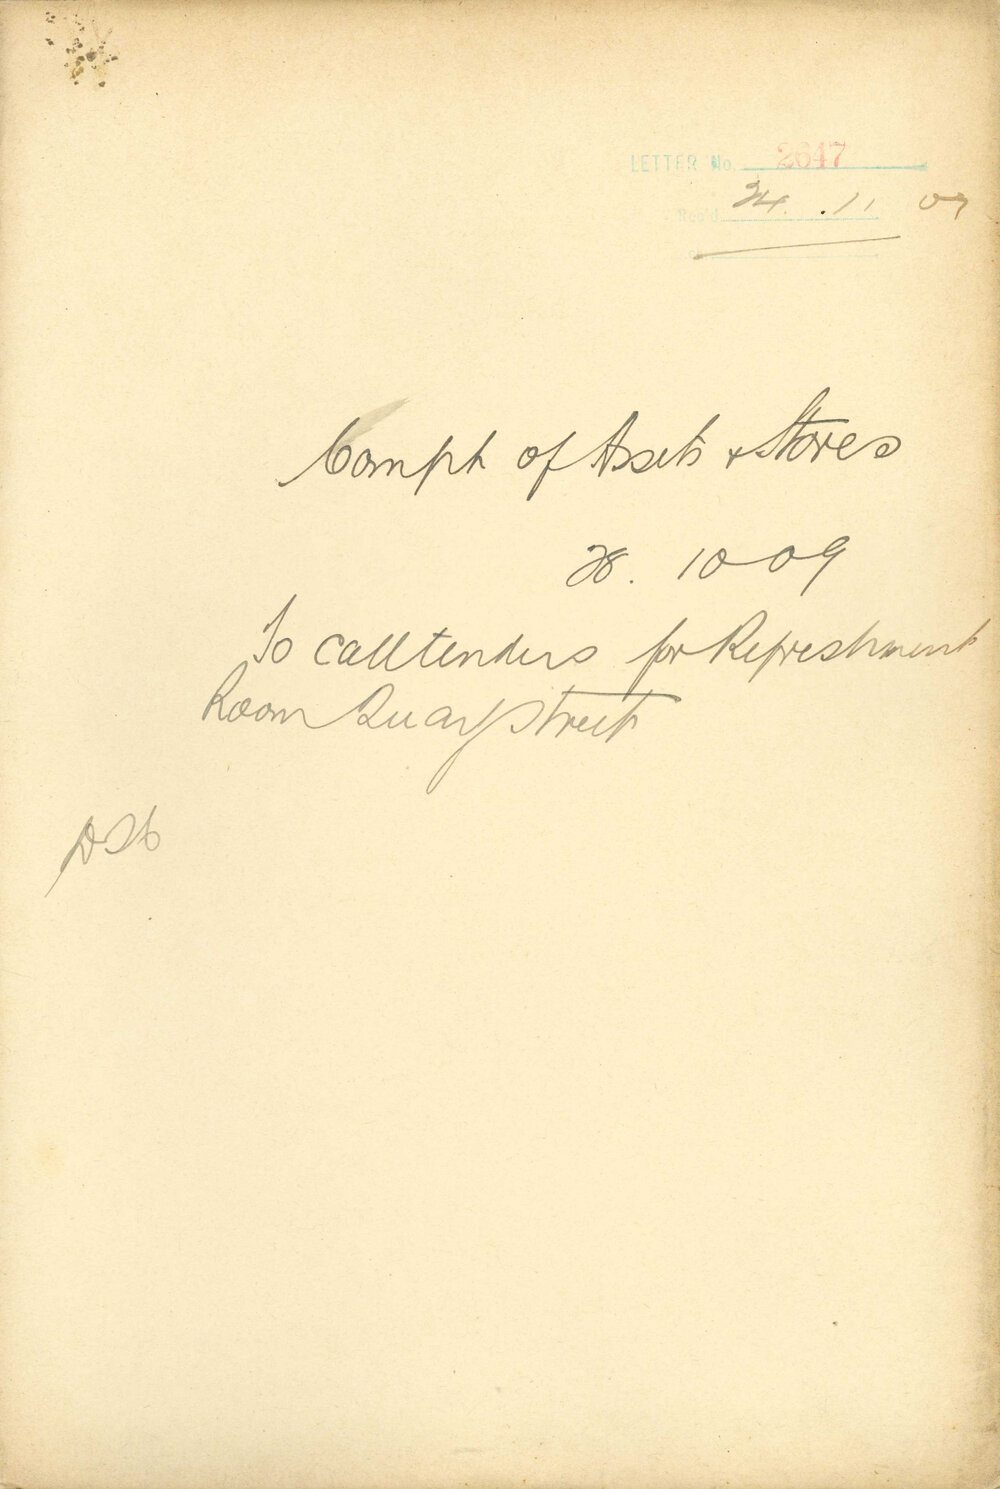 LETTER No. 2647
Rec'd 24.11 09
Compt of Assets & Stores
28. 10 09
To call tenders for Refreshment
Room Quay Street